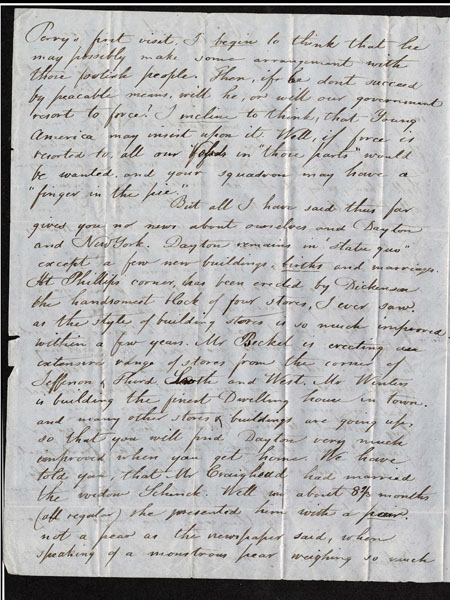 Perry's first visit, I begin to think that he
may possibly make some arrangement with
those polish people. Then, if he dont succeed
by peacable means, will he, or will our government
resort to force? I incline to think, that Young
America may insist upon it. Well, if force is
resorted to, all our in "those parts" would
be wanted, and your squadron may have a
"finger in the pie."
But all I have said thus far
gives you no news about ourselves, and Dayton
and New York. Dayton remains in "statu quo"
except a few new buildings, births and marriages.
At Phillips corner, has been erected by Dickenson
the handsomest block of four stores, I ever saw.
as the style of building stores is so much improved
within a few years. Mr Beckel is erecting an
extensive range of stores from the corner of
Jefferson & Third and West. Mr Winters
is building the finest Dwelling house in town.
and many other stores & buildings are going up,
so that you will find Dayton very much
improved when you get home. We have
told you, that Mr Craighead had married
the widow Schenck. Well in about 8¾ months
(all regular) she presented him with a pear.
not a pear as the newspaper said, when
speaking of a monstrous pear weighing so much